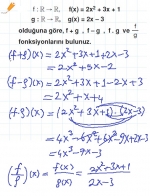 f : ℝ → ℝ, f(x) = 2x² + 3x + 1
g : ℝ → ℝ, g(x) = 2x − 3
olduğuna göre, f + g , f − g , f . g ve f/g
fonksiyonlarını bulunuz.
(f+g)(x) = 2x²+3x+1+2x-3
= 2x²+5x-2
(f-g)(x) = 2x²+3x+1-2x+3
= 2x²+x+4
(f.g)(x) = (2x²+3x+1).(2x-3)
4x³-6x²+6x²-9x+2x-3
= 4x³-7x-3
(f/g)(x) = f(x)/g(x) = 2x²+3x+1/2x-3